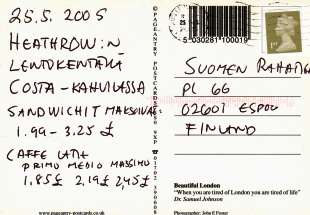 25.5. 2005
HEATHROW:N
LENTOKENTÄLLÄ
COSTA - KAHVILASSA
SANDWICHIT MAKSOIVAT
1.90 - 3.25 £
CAFFE LATTE
PRIMO MEDIO MASSIMO
1,85£ 2,19£ 2,45£
www.pageantry-postcards.co.uk
© PAGEANTRY POSTCARDS
5 030281 100019
SUOMEN
PL 66
02601 ESPOO
FINLAND
Beautiful London
"When you are tired of London you are tired of life"
Dr. Samuel Johnson
Photographer: John E Foster